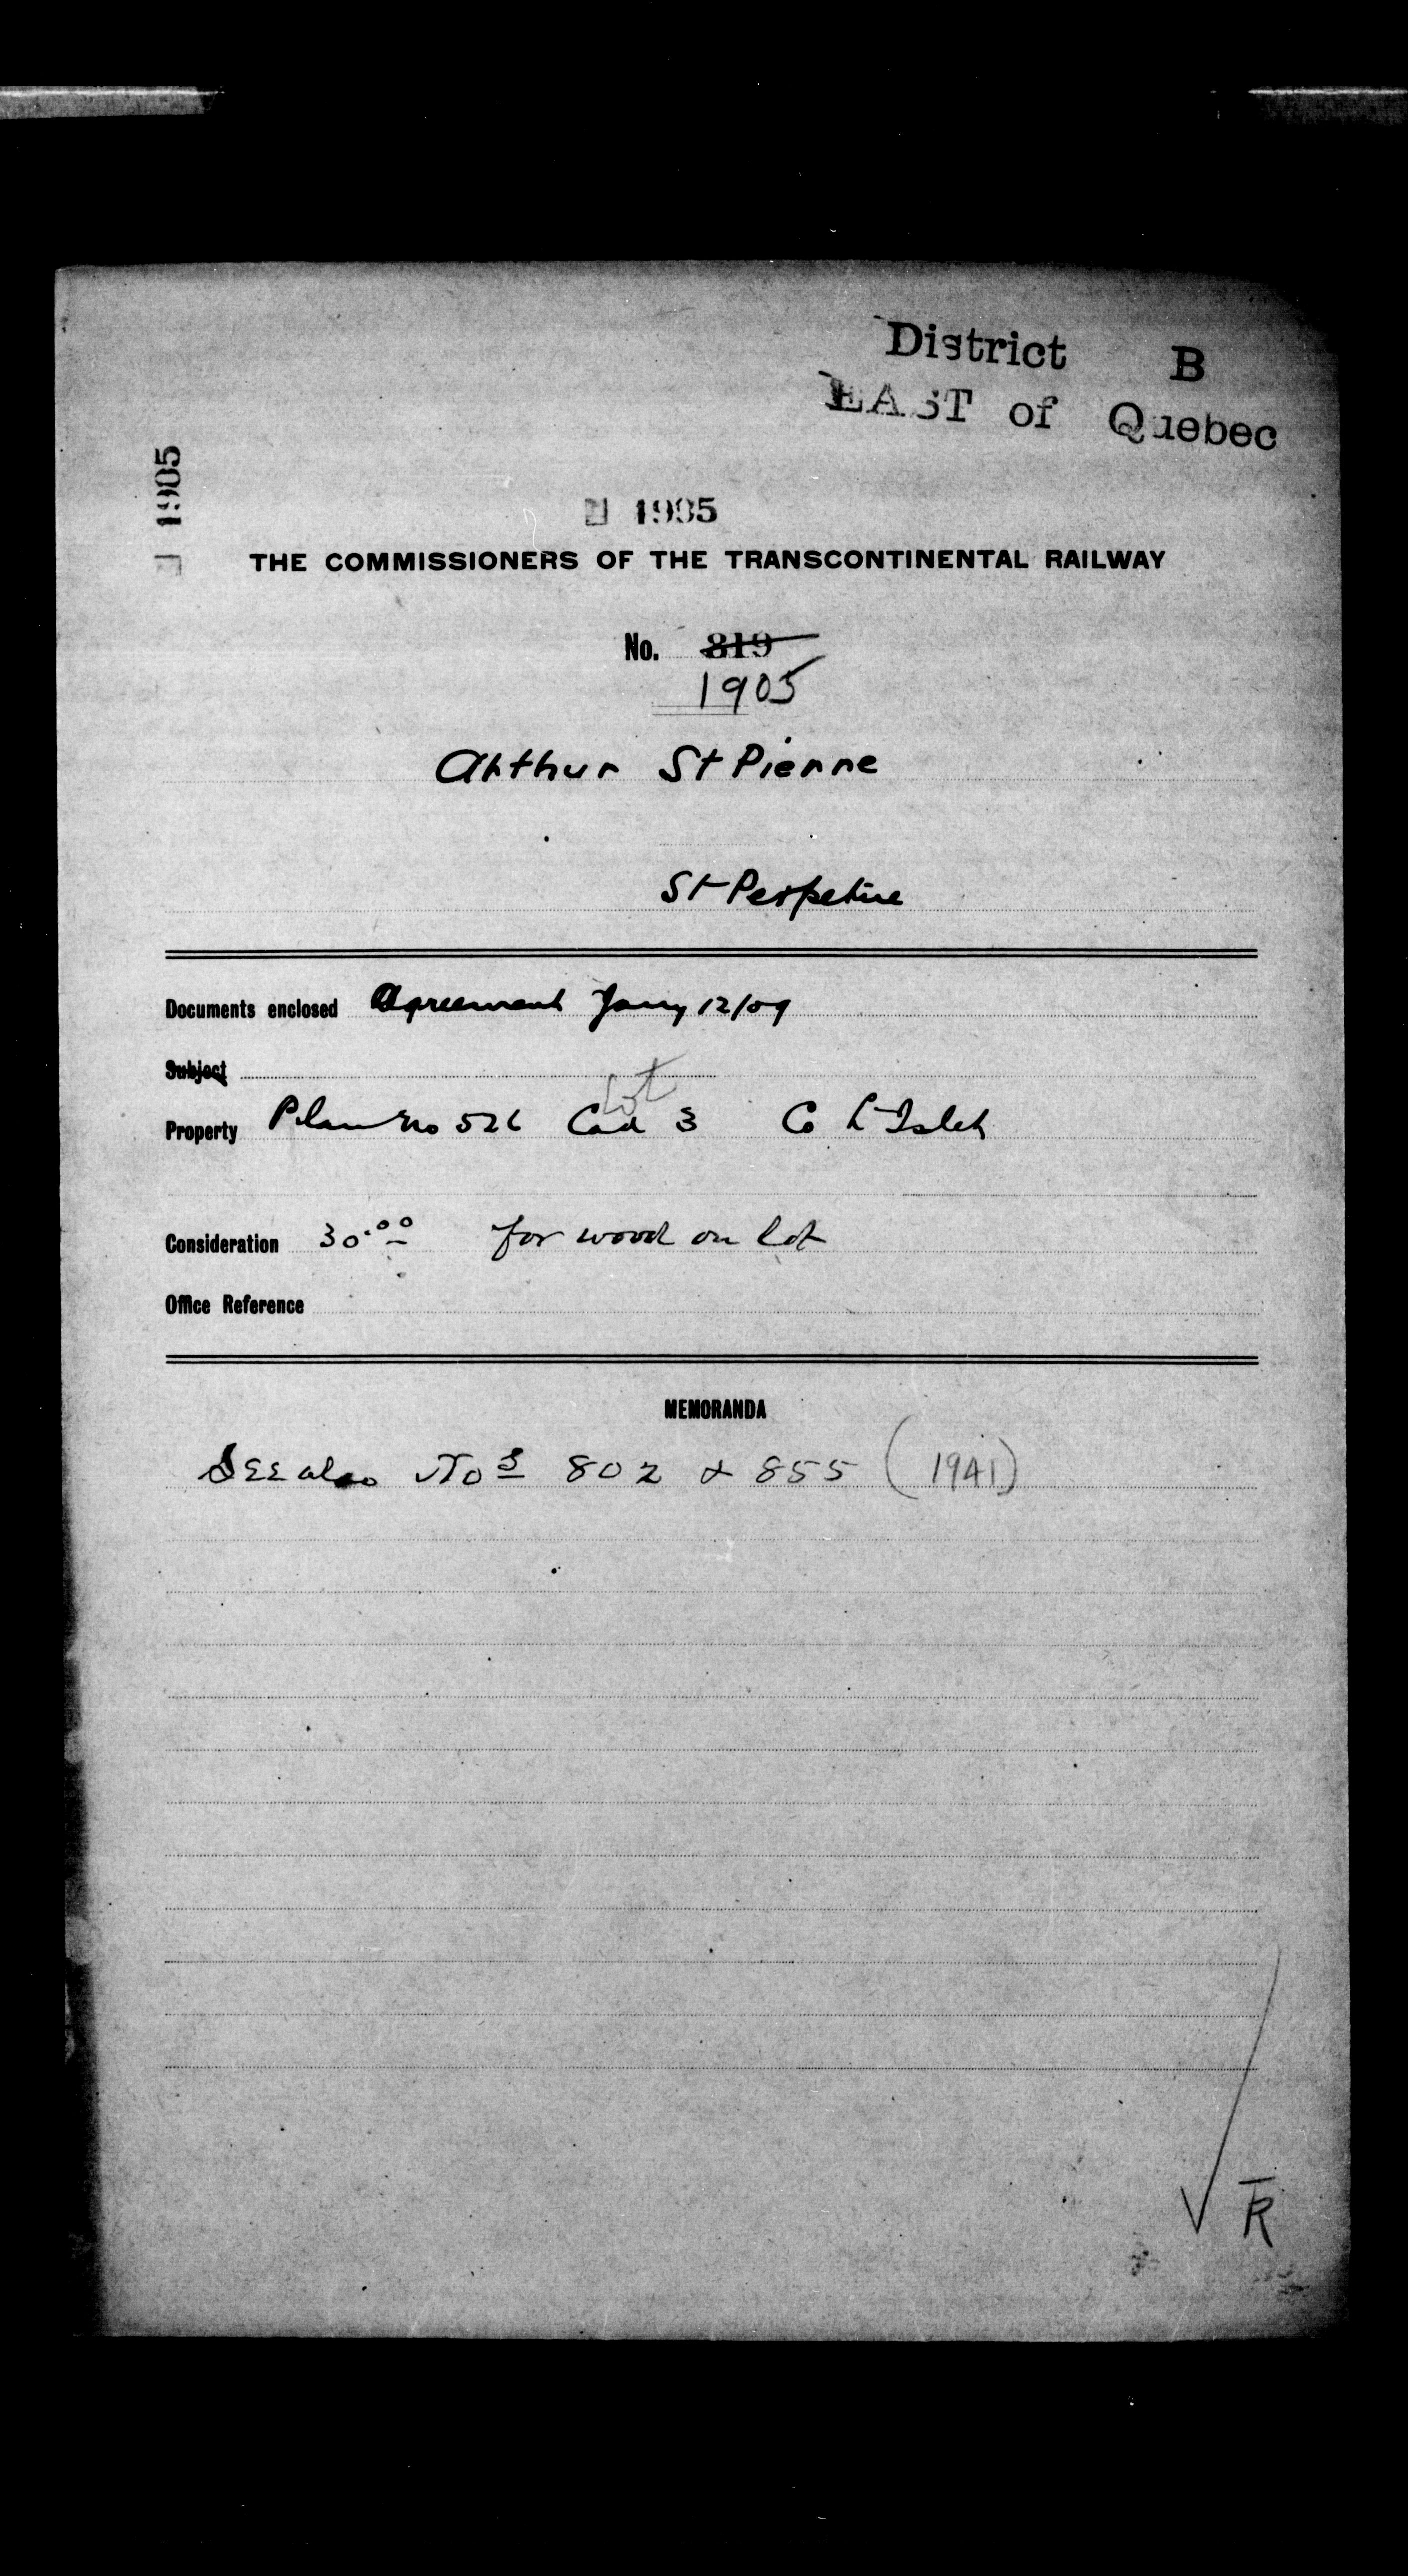 District B
EAST of Quebec
1905
1905
THE COMMISSIONERS OF THE TRANSCONTINENTAL RAILWAY
No. 819
1905
Arthur St Pierre
St Perpetue
Documents enclosed Agreement Jany 12/09
Subject
Lot
Property Plan No 526 Cad 3 Co L'Islet
Consideration 30.00 for wood on lot
Office Reference
MEMORANDA
See also Nos 802 & 855 (1941)
R